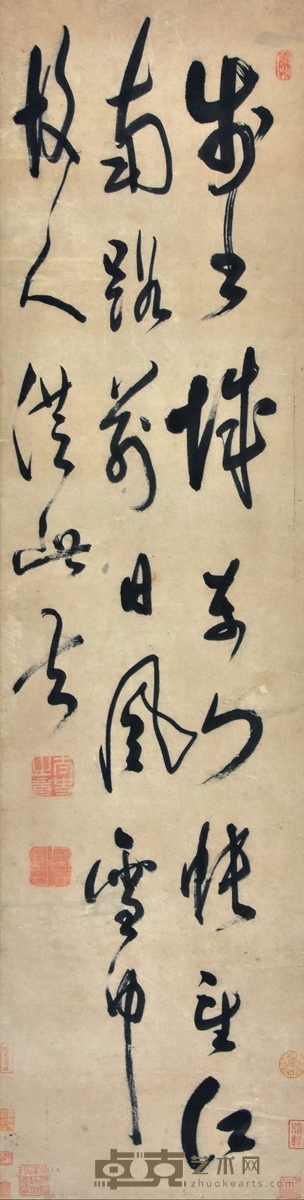 步出城東門悵望江
南路前日風雪中
故人從此去
卓克艺术网
zhuokearts.com